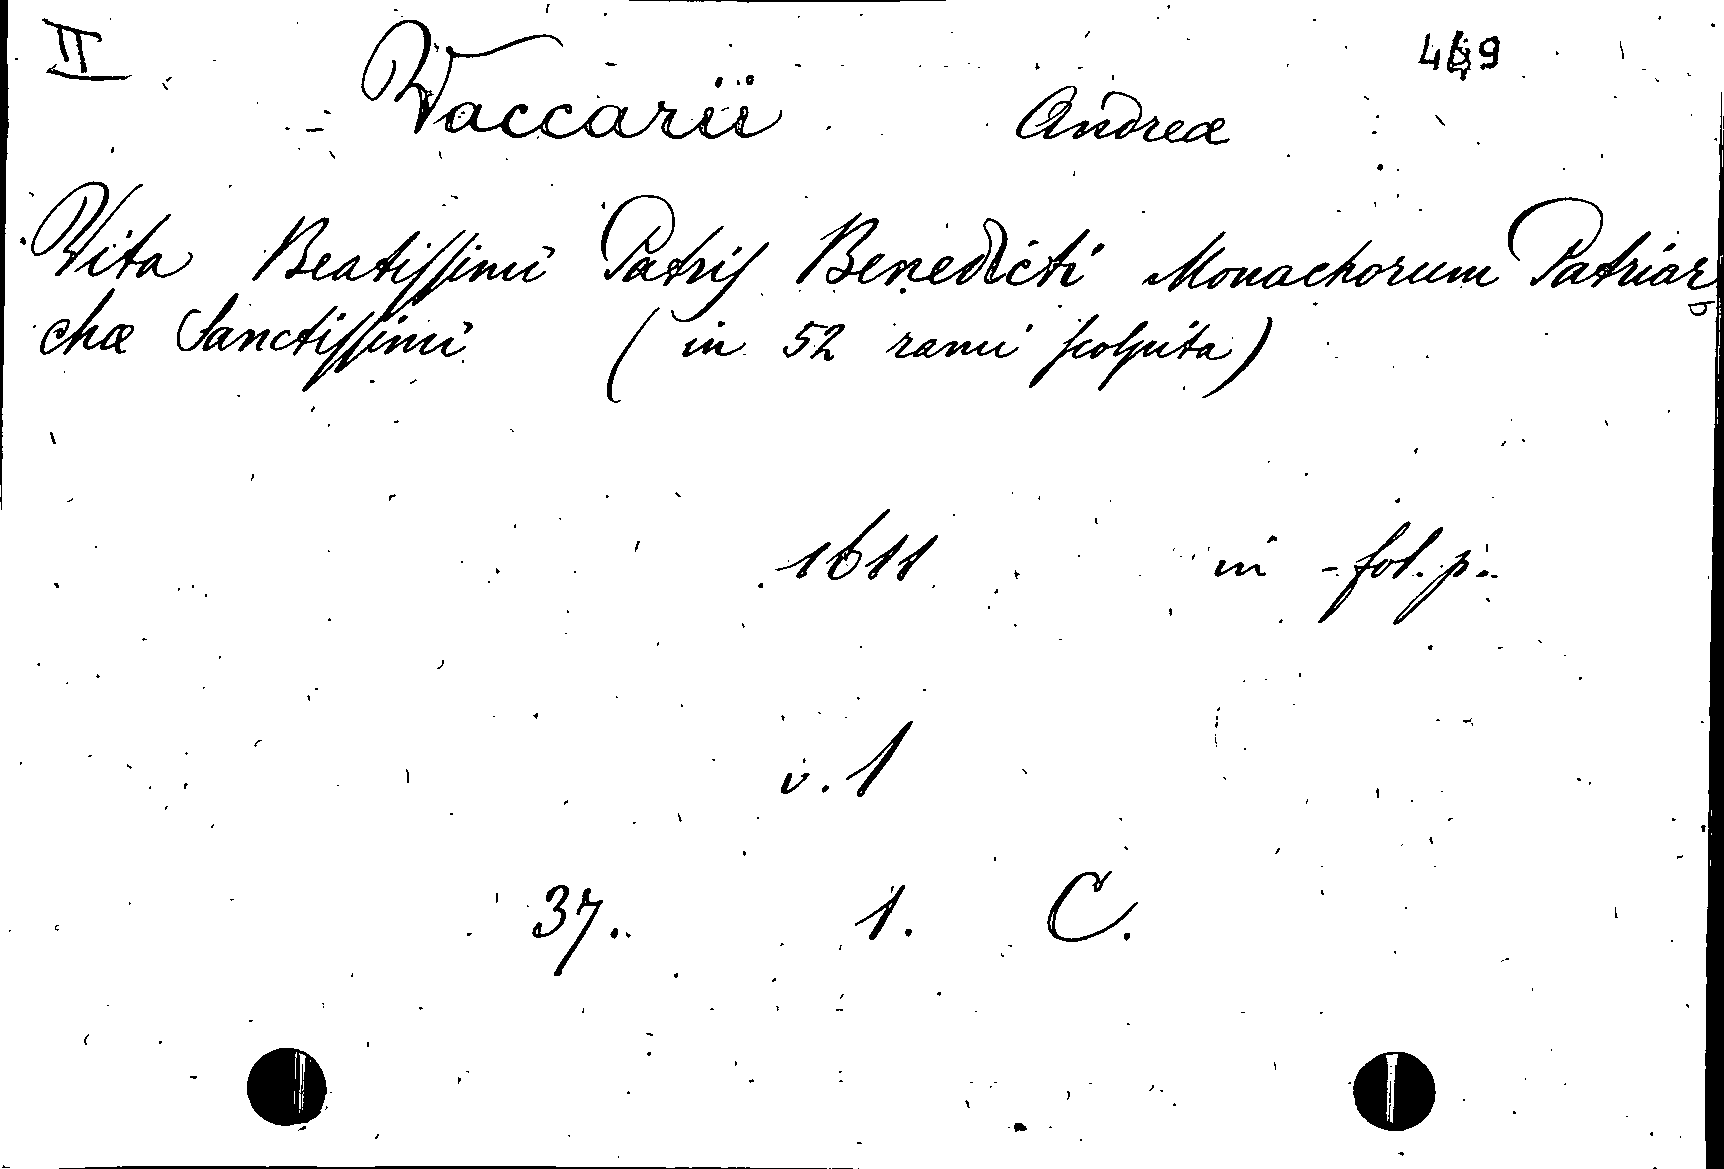 II 449
Vaccarii Andreæ
Vita Beatissimi Patris Benedicti Monachorum Patriar
chæ Sanctissimi (in 52 rami scolpita)
1611 in - fol. p.
v. 1
37. 1. C.